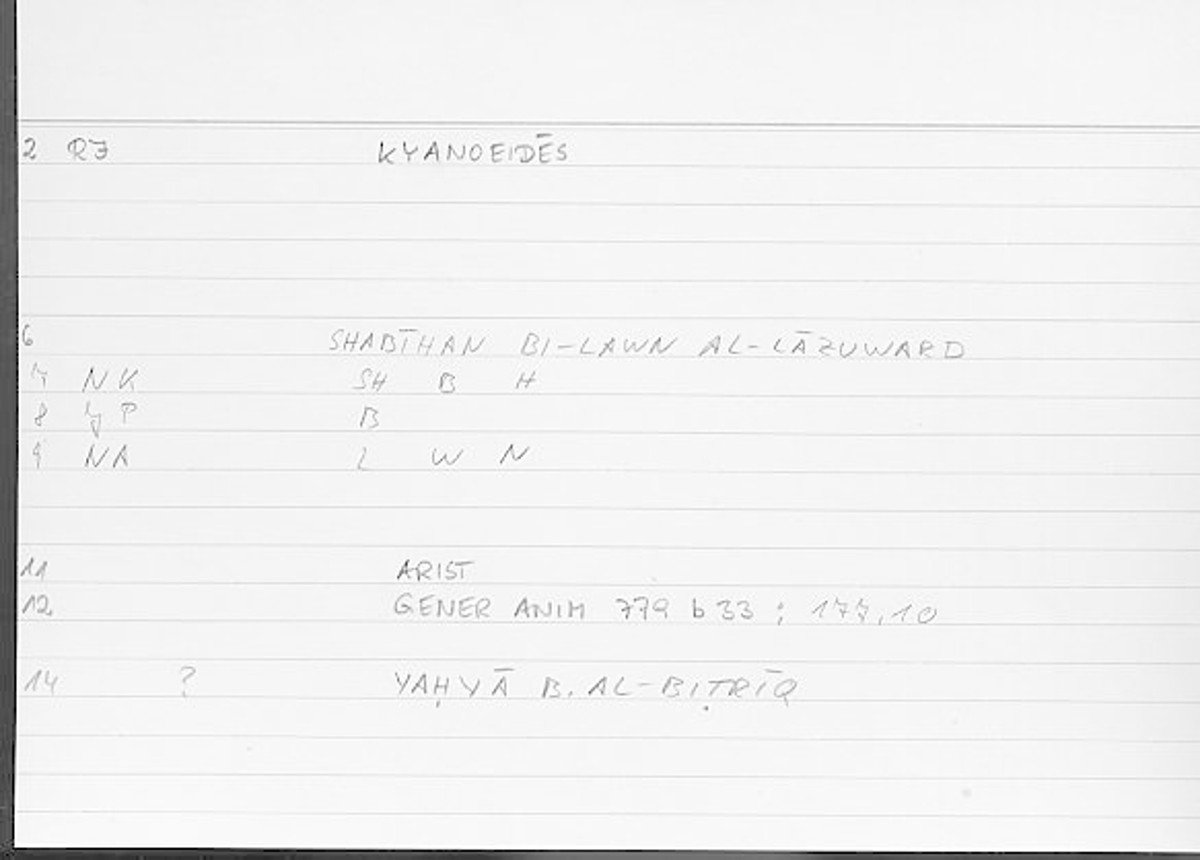 2 RJ KYANOEIDĒS
6 SHABĪHAN BI-LAWN AL-LĀZUWARD
7 NK SH B H
8 YP B
9 NA L W N
11 ARIST
12 GENER ANIM 779 b 33 ; 177,10
14 ? YAḤYĀ B. AL-BIṬRĪQ